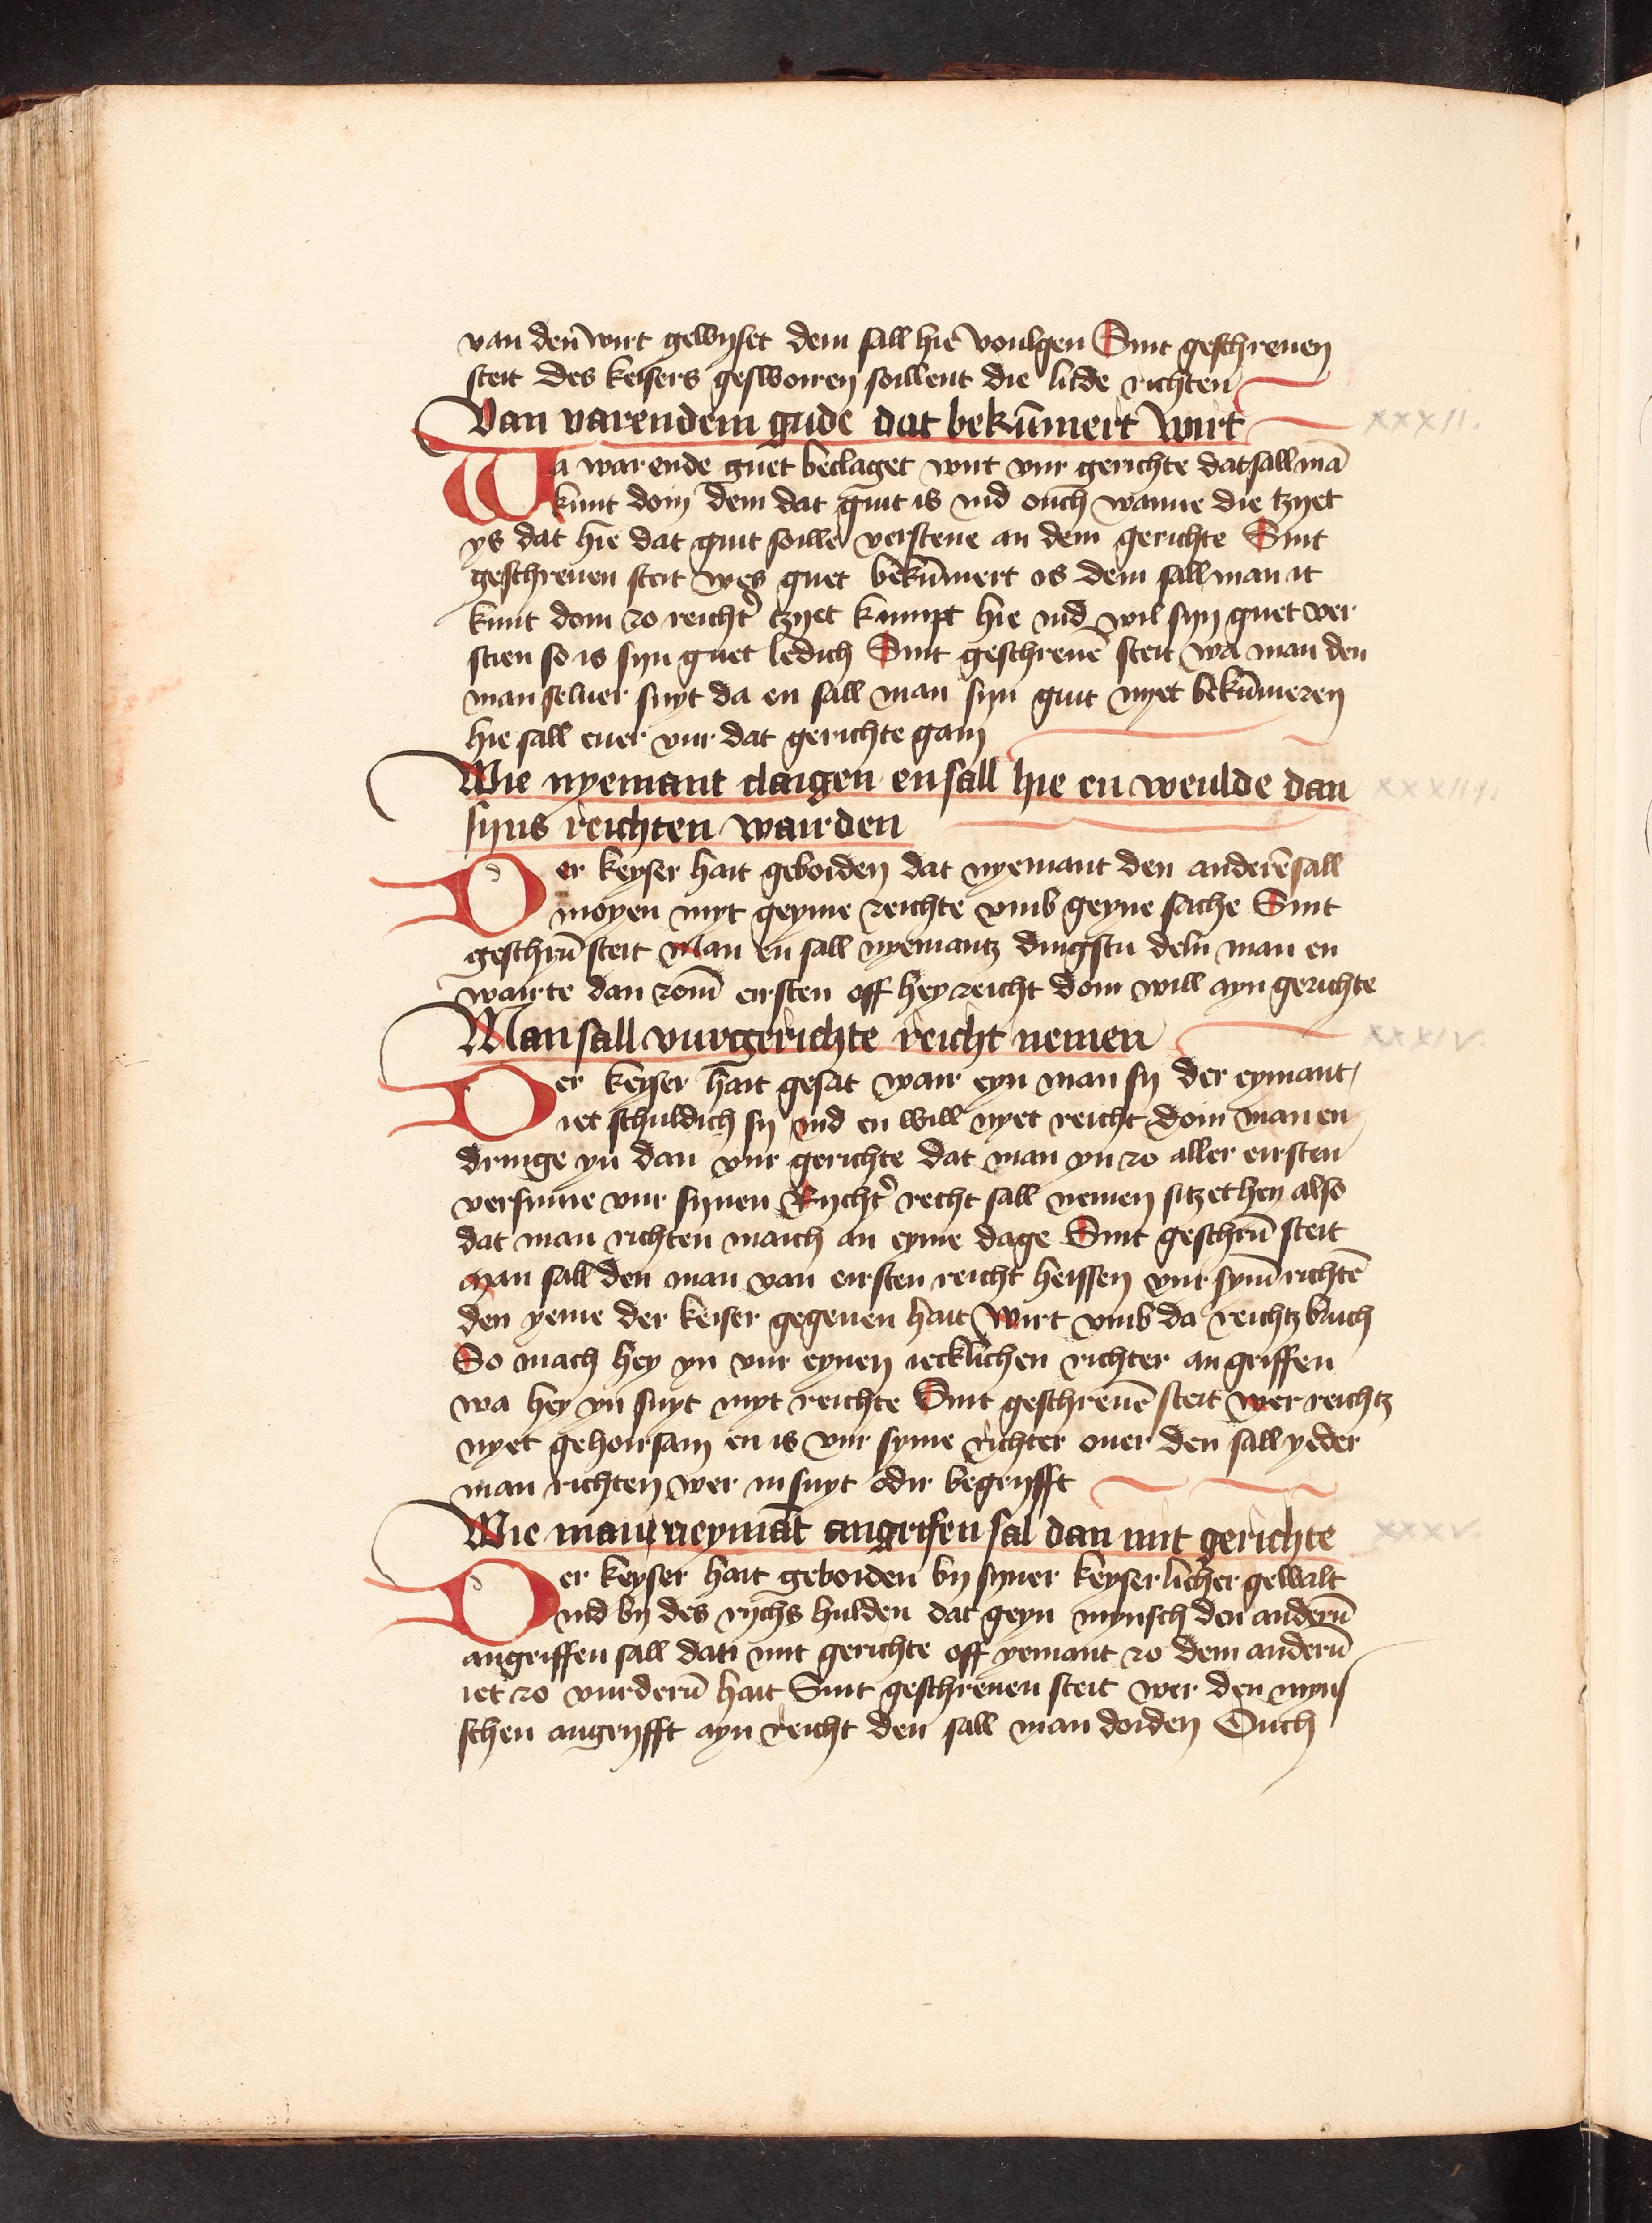 van den̄ wirt gewyset dem sall hie voulgen Sint geschreuen
steit des keisers geswoiren soillent die lude richten
Van varendem gude dat bekūmert wirt
xxxii.
Wa warende guet beclaget wirt vur gerichte dat sall mā
kunt doin dem dat guit is ind ouch wanne die tzyet
ys dat hie dat guit soille verstene an dem gerichte Sint
geschreuen steit wes guet bekūmert is dem sall man it
kunt doin zo reicht' tzyet kumpt hie ind wil syn guet ver
stien so is syn guet ledich Sint geschreuē steit wa man den
man seluer suyt da en sall man syn guit nyet bekūmeren
hie sall euer vur dat gerichte gain
Wie nyemant claigen en sall hie en weulde dan
xxxiii.
syns reichten wairden
Der keyser hait geboiden dat nyemant den anderē sall
moyen myt geyme reichte vmb geyne sache Sint
geschrūū steit Man en sall nyemantz dingstu deln man en
wairte dan zom̄ eirsten off hey reicht doin will ayn gerichte
Man sall vur gerichte reicht nemen
xxxiv.
Der keyser hait gesat wair eyn man sy der eymant
iet schuldich sy ind en will nyet reicht doin man en
dringe yn dan vur gerichte dat man yn zo aller eirsten
versinne vur synen Rycht' recht sall nemen sitzet hey also
dat man richten maich an eyme dage Sint geschrū steit
man sall den man van eirsten reicht heissen vur sym̄ richtē
den yeme der keiser gegeuen hait Wirt vmb da reichtz bruch
So mach hey yn vur eynen iecklichen richter an griffen
wa hey yn suyt myt reichte Sint geschreuē steit wer reichtz
nyet gehoirsam en is vur syme richter ouer den sall yeder
man richten wer in suyt odir begryfft
Wie man neymāt angrifen sal dan mit gerichte
xxxv.
Der keyser hait geboiden by syner keyserlicher gewalt
ind by des rychs hulden dat geyn mynsch den anderū
angriffen sall dan mit gerichte off yemant zo dem anderū
iet zo vurderū hait Sint geschreuen steit wer den myn
schen angryfft ayn reicht den sall man doiden Ouch